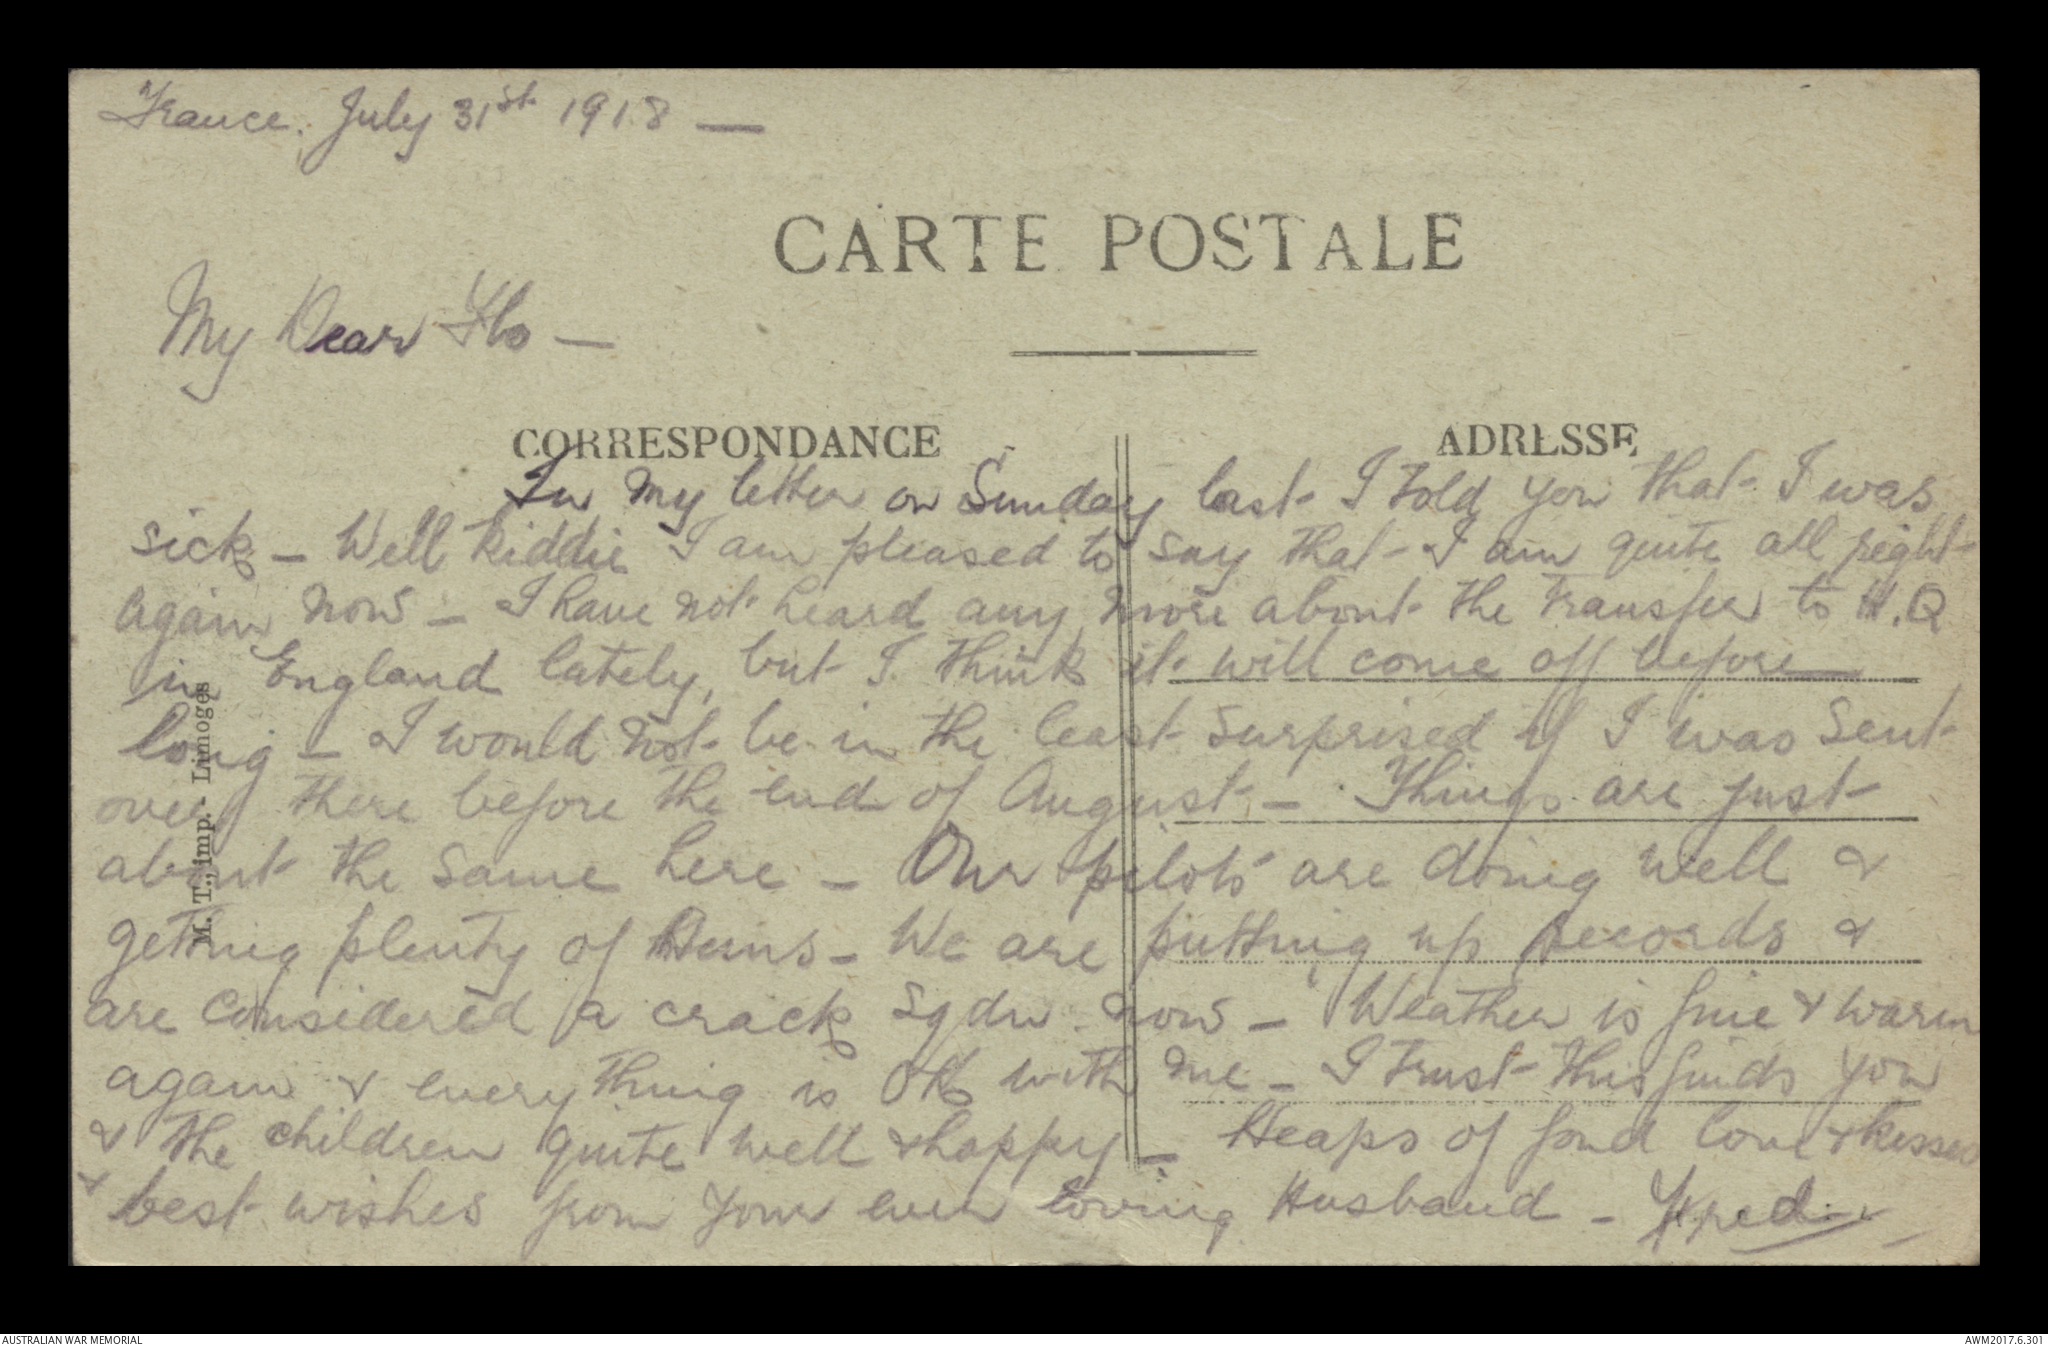 France. July 31st 1918 —
CARTE POSTALE
My Dear Flo —
CORRESPONDANCE
ADRESSE
In my letter on Sunday last I told you that I was
sick – Well Kiddie I am pleased to say that I am quite all right
again now – I have not heard any more about the transfer to H.Q
in England lately, but I think it will come off before
long – I would not be in the least surprised if I was sent
over there before the end of August – Things are just
about the same here – Our pilots are doing well &
getting plenty of Huns – We are putting up records &
are considered a crack Sqdn now – Weather is fine & warm
again & everything is OK with me – I trust this finds you
& the children quite well & happy – Heaps of fond love & kisses
& best wishes from your ever loving Husband – Fred
M. T., imp. Limoges
AUSTRALIAN WAR MEMORIAL
AWM2017.6.301